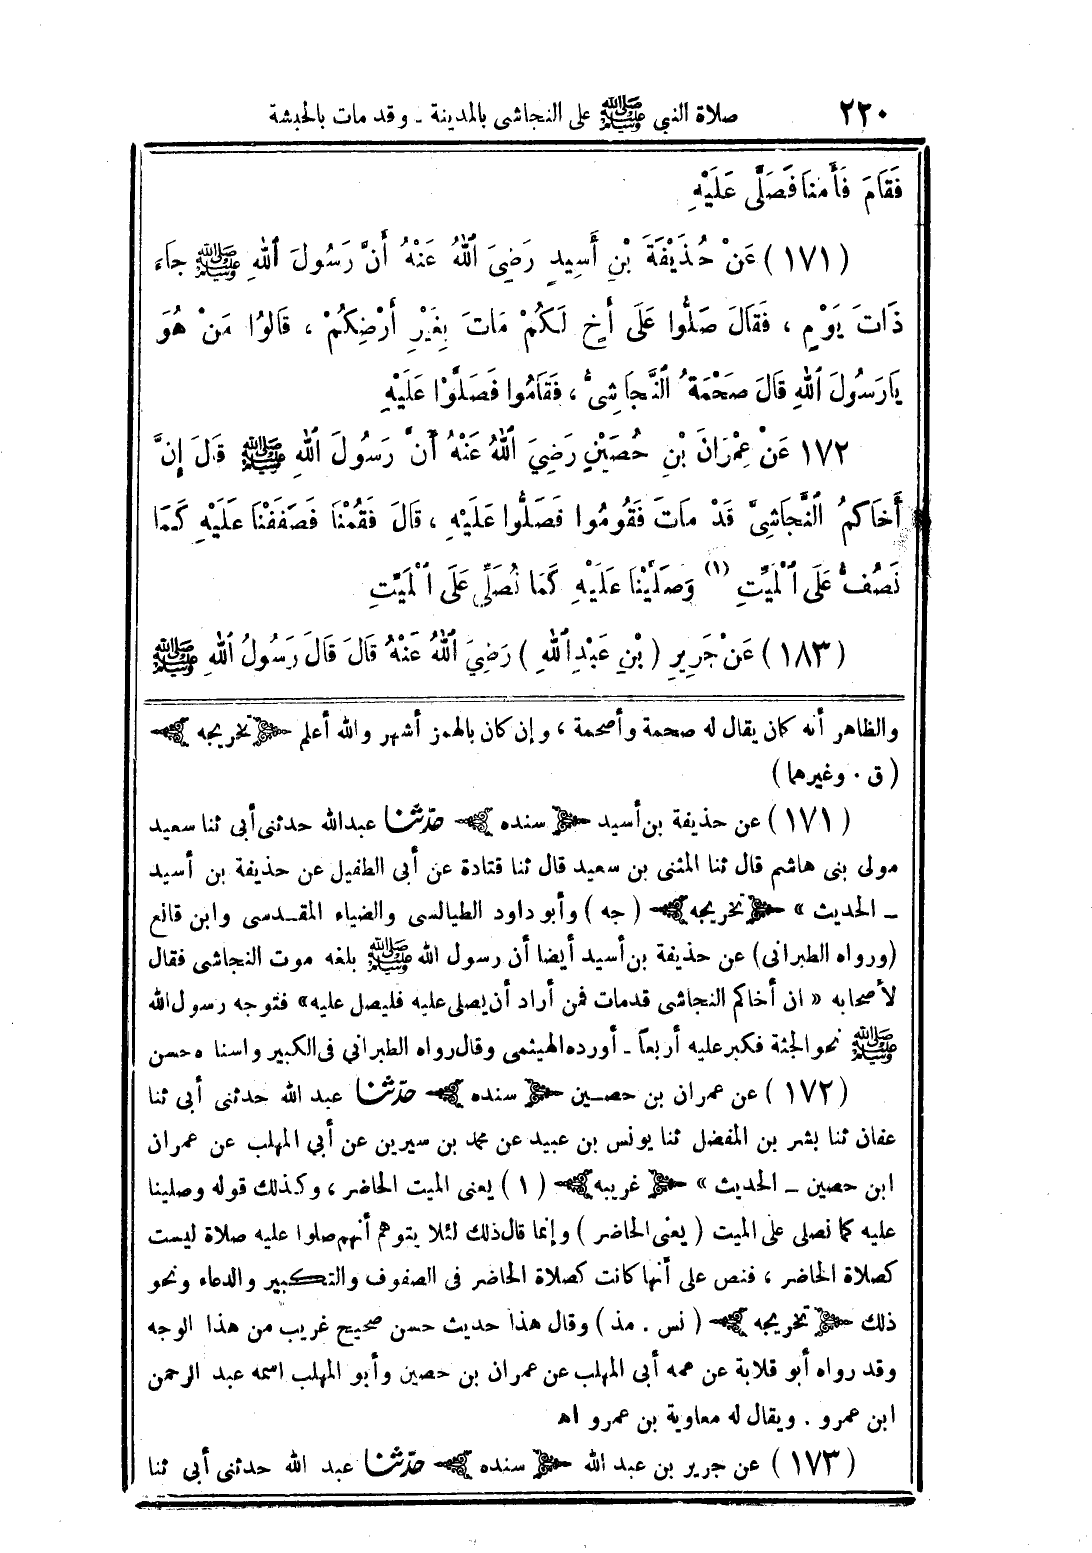 ٢٢٠ صلاة النبي ﷺ على النجاشى بالمدينة ـ وقد مات بالحبشة
فَقَامَ فَأَمَّنَا فَصَلَّى عَلَيْهِ
(١٧١) عَنْ حُذَيْفَةَ بْنِ أَسِيدٍ رَضِيَ اللهُ عَنْهُ أَنَّ رَسُولَ اللهِ ﷺ جَاءَ
ذَاتَ يَوْمٍ ، فَقَالَ صَلُّوا عَلَى أَخٍ لَكُمْ مَاتَ بِغَيْرِ أَرْضِكُمْ ، قَالُوا مَنْ هُوَ
يَارَسُولَ اللهِ قَالَ صَحْمَةُ النَّجَاشِىُّ ، فَقَامُوا فَصَلَّوْا عَلَيْهِ
١٧٢ عَنْ عِمْرَانَ بْنِ حُصَيْنٍ رَضِيَ اللهُ عَنْهُ أَنَّ رَسُولَ اللهِ ﷺ قَالَ إِنَّ
أَخَاكُمُ النَّجَاشِىَّ قَدْ مَاتَ فَقُومُوا فَصَلُّوا عَلَيْهِ ، قَالَ فَقُمْنَا فَصَفَفْنَا عَلَيْهِ كَمَا
نَصُفُّ عَلَى الْمَيِّتِ (١) وَصَلَّيْنَا عَلَيْهِ كَمَا نُصَلِّى عَلَى الْمَيِّتِ
(١٨٣) عَنْ جَرِيرِ (بْنِ عَبْدِاللهِ) رَضِيَ اللهُ عَنْهُ قَالَ قَالَ رَسُولُ اللهِ ﷺ
والظاهر أنه كان يقال له صحمة وأصحمة ، وإن كان بالهمز أشهر والله أعلم ﴿ تخريجه ﴾
(ق . وغيرهما)
(١٧١) عن حذيفة بن أسيد ﴿ سنده ﴾ حدّثنا عبدالله حدثنى أبى ثنا سعيد
مولى بنى هاشم قال ثنا المثنى بن سعيد قال ثنا قتادة عن أبى الطفيل عن حذيفة بن أسيد
ـ الحديث » ﴿ تخريجه ﴾ (جه) وأبو داود الطيالسى والضياء المقدسى وابن قانع
(ورواه الطبرانى) عن حذيفة بن أسيد أيضا أن رسول الله ﷺ بلغه موت النجاشى فقال
لأصحابه « ان أخاكم النجاشى قدمات فمن أراد أن يصلى عليه فليصل عليه» فتوجه رسول الله
ﷺ نحو الجثة فكبر عليه أربعاً ـ أورده الهيثمى وقال رواه الطبراني فى الكبير واسناده حسن
(١٧٢) عن عمران بن حصين ﴿ سنده ﴾ حدّثنا عبد الله حدثنى أبى ثنا
عفان ثنا بشر بن المفضل ثنا يونس بن عبيد عن محمد بن سيرين عن أبي المهلب عن عمران
ابن حصين ـ الحديث » ﴿ غريبه ﴾ (١) يعنى الميت الحاضر ، وكذلك قوله وصلينا
عليه كما نصلى على الميت (يعنى الحاضر) وإنما قال ذلك لئلا يتوهم أنهم صلوا عليه صلاة ليست
كصلاة الحاضر ، فنص على أنها كانت كصلاة الحاضر فى الصفوف والتكبير والدعاء ونحو
ذلك ﴿ تخريجه ﴾ (نس . مذ) وقال هذا حديث حسن صحيح غريب من هذا الوجه
وقد رواه أبو قلابة عن عمه أبى المهلب عن عمران بن حصين وأبو المهلب اسمه عبد الرحمن
ابن عمرو . ويقال له معاوية بن عمرو اه
(١٧٣) عن جرير بن عبد الله ﴿ سنده ﴾ حدّثنا عبد الله حدثنى أبي ثنا